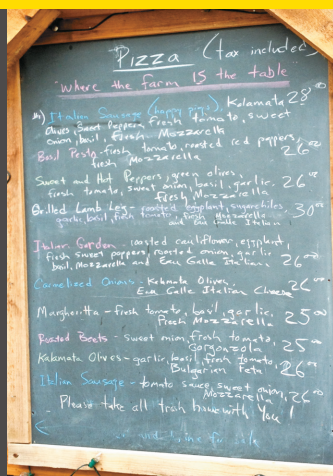 Pizza (tax included)
"where the farm IS the table"
Italian Sausage (happy pigs), Kalamata 28.00
Olives, Sweet Peppers, fresh tomato, sweet
onion, basil, fresh Mozzarella
Basil Pesto - fresh tomato, roasted red peppers,
fresh Mozzarella 26.00
Sweet and Hot Peppers, green olives,
fresh tomato, sweet onion, basil, garlic. 26.00
Fresh Mozzarella
Grilled Lamb Leg - roasted eggplant, 30.00
garlic, basil, fresh tomato, fresh Mozzarella
and Eau Galle Italian
Italian Garden - roasted cauliflower, eggplant,
fresh sweet peppers, roasted onion, garlic
basil, Mozzarella and Eau Galle Italian 26.00
Carmelized Onions - Kalamata Olives, 26.00
Eau Galle Italian Cheese
Margheritta - fresh tomato, basil, garlic, 25.00
Fresh Mozzarella
Roasted Beets - sweet onion, fresh tomato, 25.00
Gorgonzola
Kalamata Olives - garlic, basil, fresh tomato, 26.00
Bulgarian Feta
Italian Sausage - tomato sauce, sweet onion, 26.00
Mozzarella
- Please take all trash home with You!
and